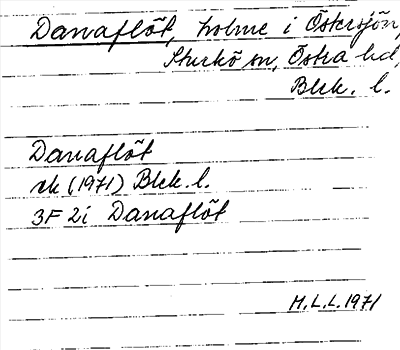 Danaflöt, holme i Östersjön,
Sturkö sn, Östra hd,
Blek. l.
Danaflöt
ek (1971) Blek. l.
3F 2i Danaflöt
M.L.L. 1971